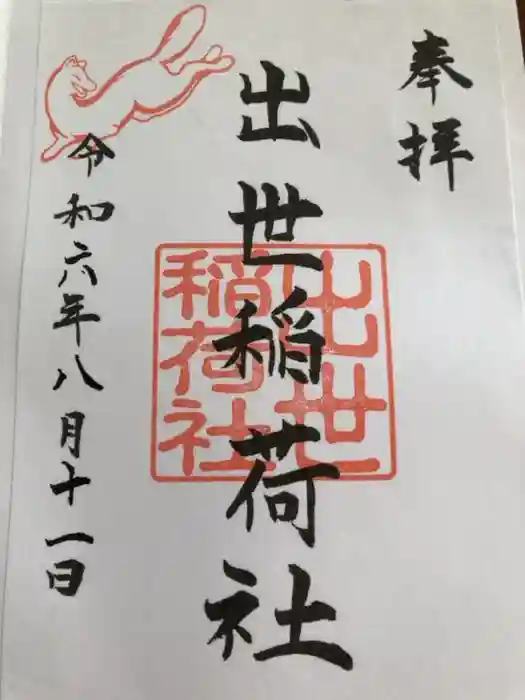 奉拝
出世稲荷社
出世
稲荷社
令和六年八月十一日